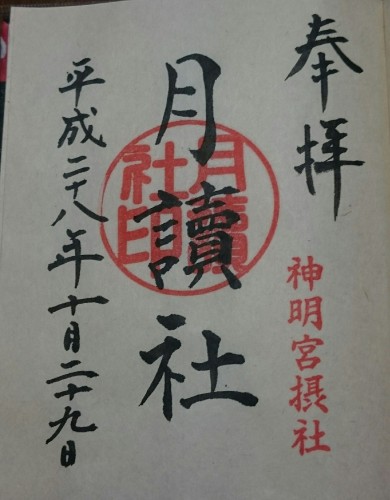 奉拝
神明宮摂社
月讀社
月讀社印
平成二十八年十月二十九日